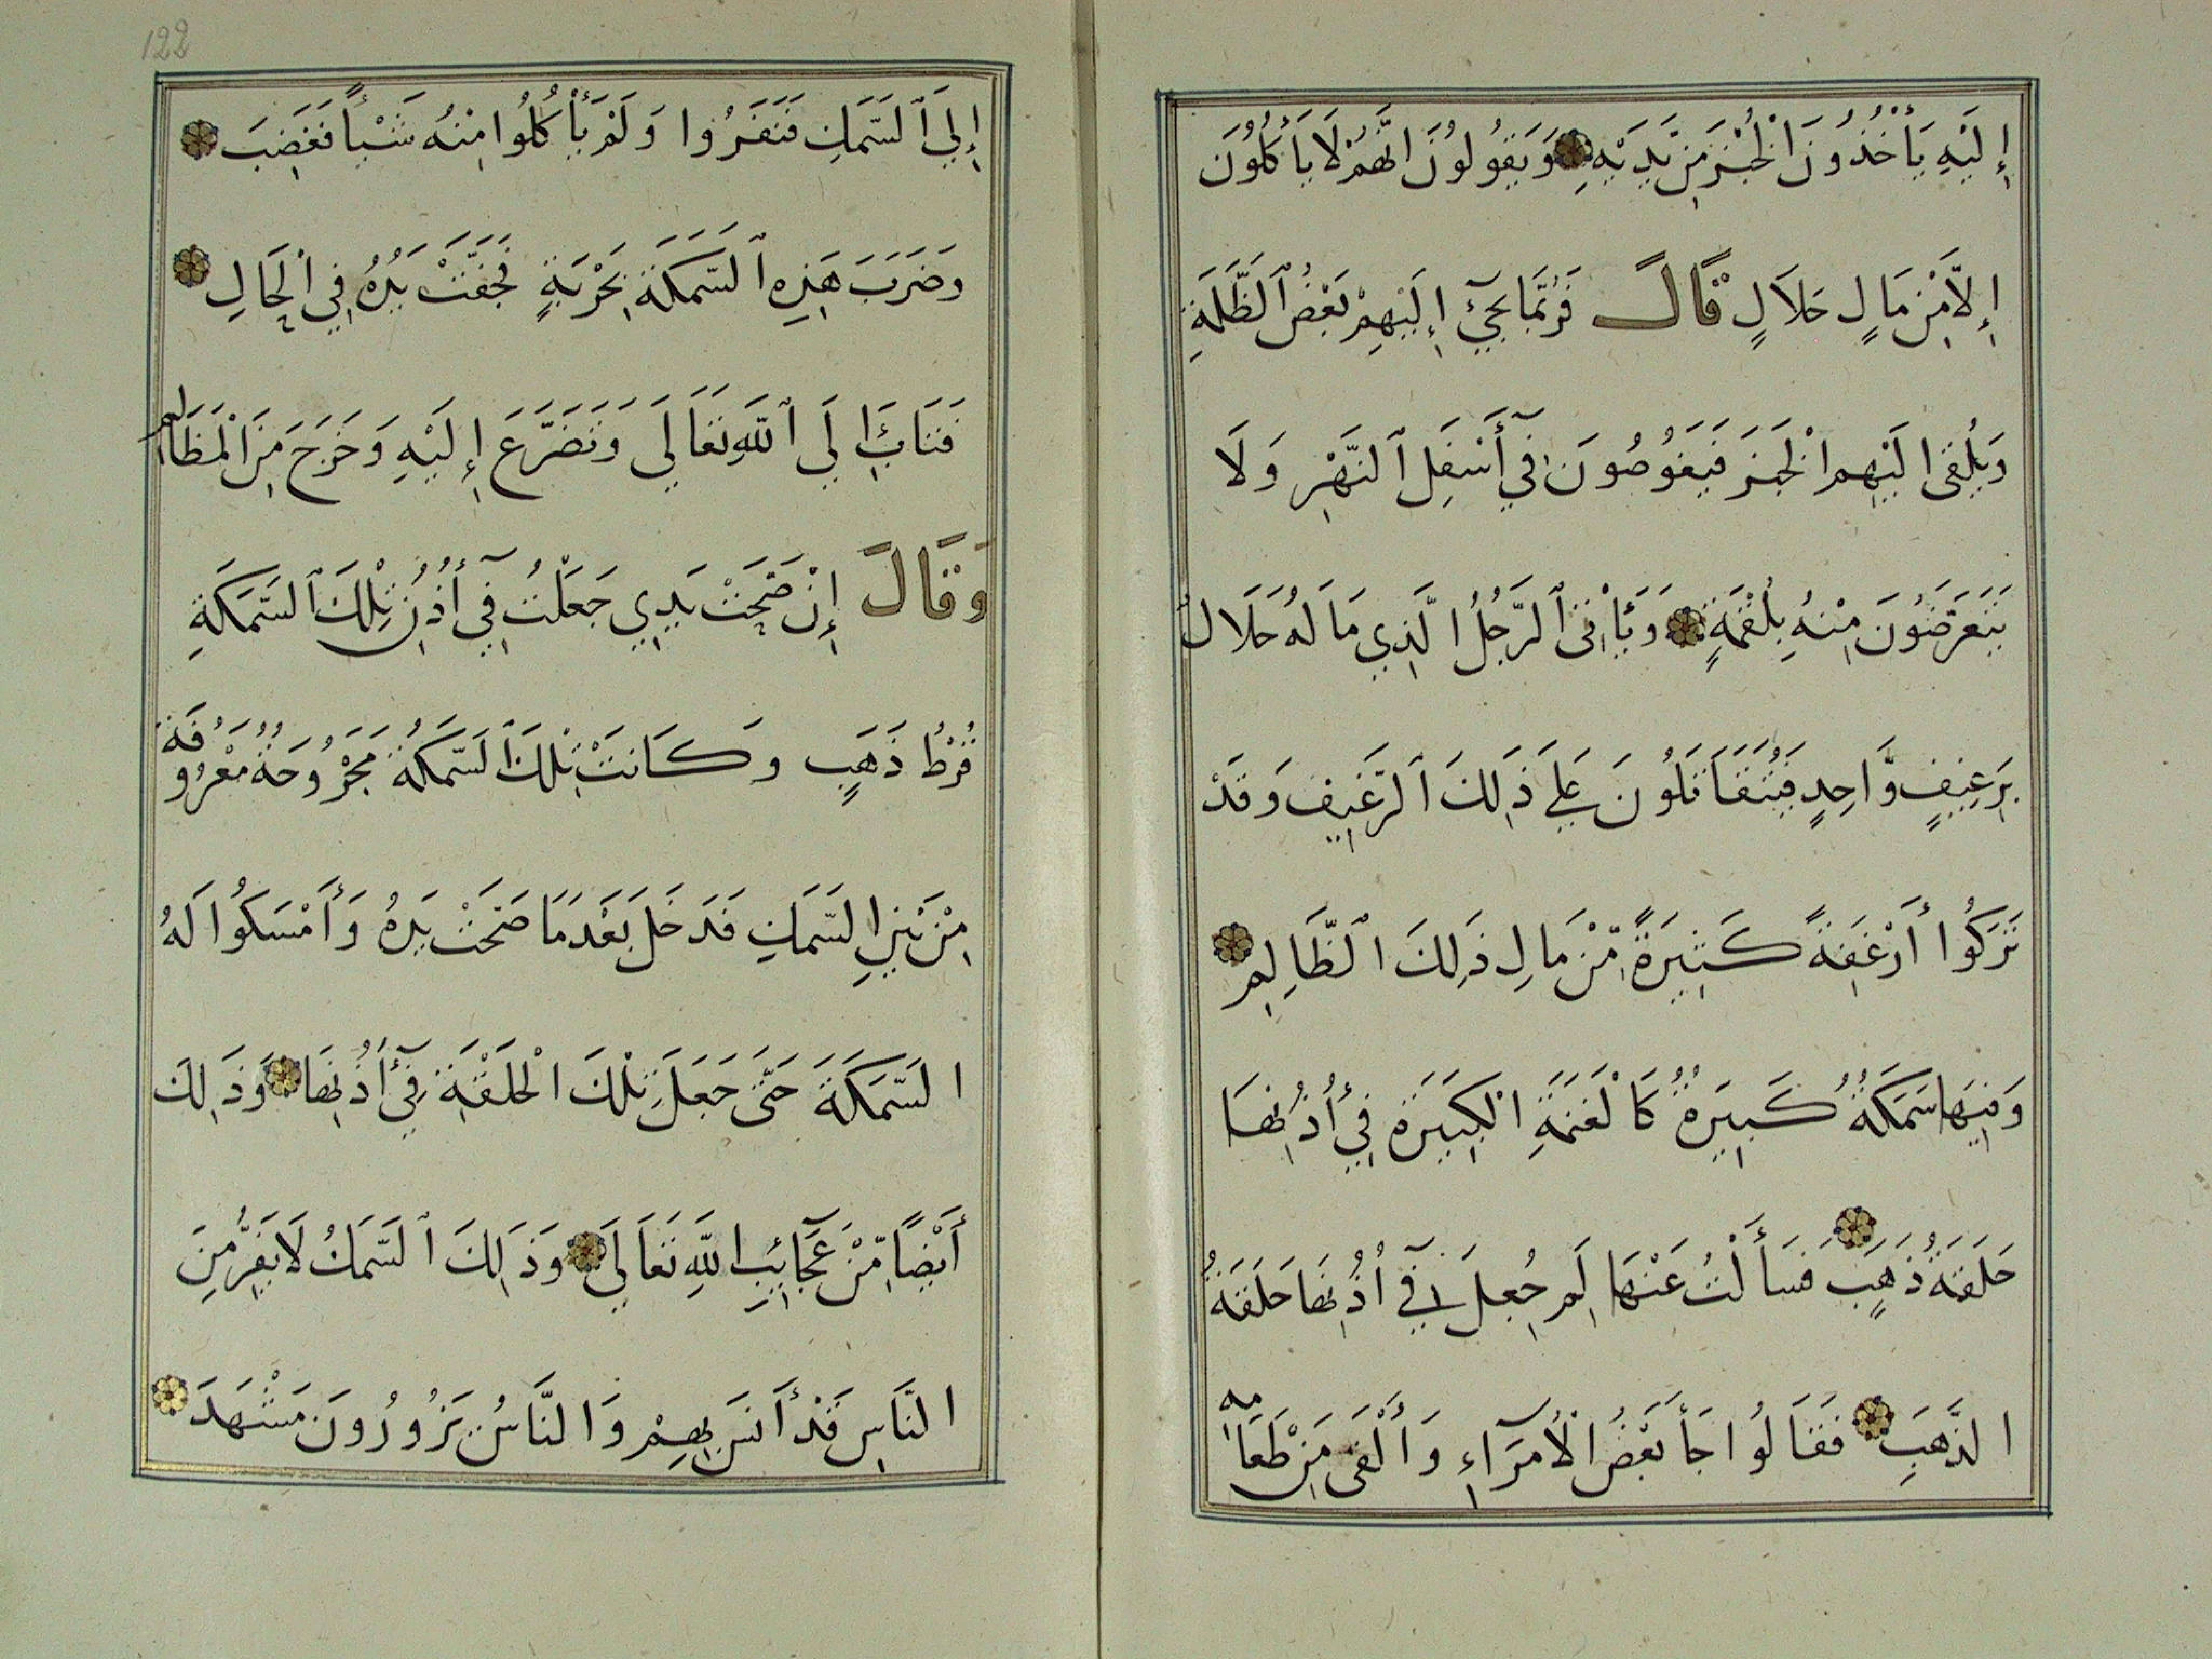 إِلَيْهِ يَأْخُذُونَ الْخُبْزَ مِنْ يَدَيْهِ وَيَقُولُونَ انَّهُمْ لَا يَأْكُلُونَ
إِلَّا مِنْ مَالٍ حَلَالٍ قَالَ فَرُبَّمَا يَجِئْ إِلَيْهِمْ بَعْضُ الظَّلَمَةِ
وَيُلْقِى الَيْهِمِ الْخُبْزَ فَيَغُوصُونَ فِي أَسْفَلِ النَّهْرِ وَلَا
يَتَعَرَّضُونَ مِنْهُ بِلُقْمَةٍ وَيَأْتِى الرَّجُلُ الَّذِي مَالَهُ حَلَالٌ
بِرَغِيفٍ وَّاحِدٍ فَيَتَقَاتَلُونَ عَلَى ذَلِكَ الرَّغِيفِ وَقَدْ
تَرَكُوا أَرْغِفَةً كَثِيرَةً مِّنْ مَالِ ذَلِكَ الظَّالِمِ
وَفِيهَا سَمَكَةٌ كَبِيرَةٌ كَالْغَنَمَةِ الْكَبِيرَةِ فِي أُذُنِهَا
حَلَقَةُ ذَهَبٍ فَسَأَلْتُ عَنْهَا لِمَ جُعِلَ فِي اُذُنِهَا حَلَقَةُ
الذَّهَبِ فَقَالُوا جَأَ بَعْضُ الْأُمَرَآءِ وَأَلْقَى مِنْ طَعَامِهِ
إِلَى السَّمَكِ فَنَفَرُوا وَلَمْ يَأْكُلُوا مِنْهُ شَيْـأً فَغَضِبَ
وَضَرَبَ هَذِهِ السَّمَكَةَ بِحَرْبَةٍ فَجَفَّتْ يَدُهُ فِي الْحَالِ
فَتَابَ إِلَى اللَّهِ تَعَالَى وَتَضَرَّعَ إِلَيْهِ وَخَرَجَ مِنَ الْمَظَالِمِ
وَقَالَ إِنْ صَحَّتْ يَدِي جَعَلْتُ فِي أُذُنِ تِلْكَ السَّمَكَةِ
قُرْطُ ذَهَبٍ وَكَانَتْ تِلْكَ السَّمَكَةُ مَجْرُوحَةٌ مَعْرُوفَةٌ
مِنْ بَيْنِ السَّمَكِ فَدَخَلَ بَعْدَمَا صَحَّتْ يَدُهُ وَأَمْسَكُوا لَهُ
السَّمَكَةَ حَتَّى جَعَلَ تِلْكَ الْحَلَقَةَ فِي أُذُنِهَا وَذَلِكَ
أَيْضًا مِّنْ عَجَآئِبِ اللَّهِ تَعَالَى وَذَلِكَ السَّمَكُ لَا يَفِرُّ مِنَ
النَّاسِ قَدْ أَنَسَ بِهِمْ وَالنَّاسُ يَزُورُونَ مَشْهَدَ
122